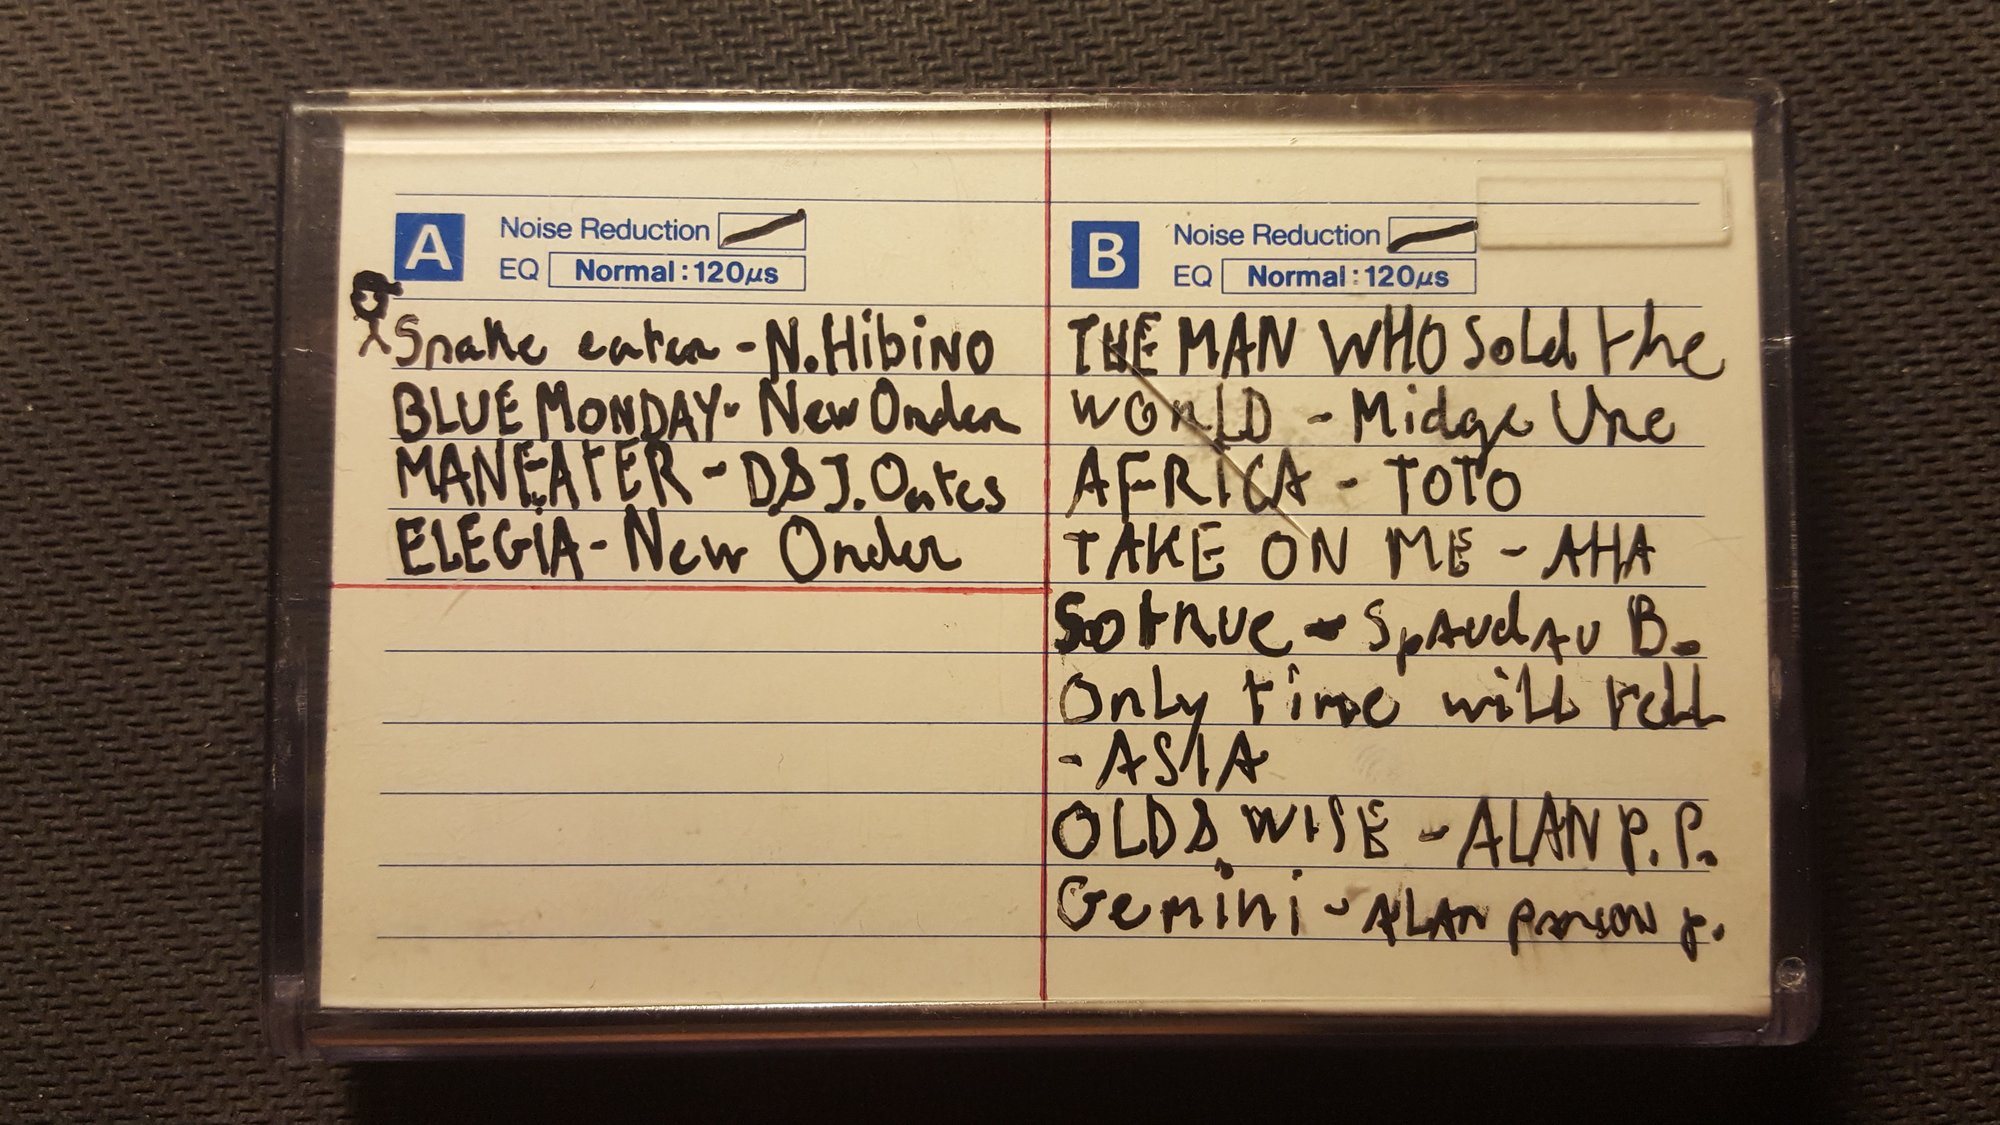 A Noise Reduction
EQ Normal:120μs
Snake eater - N.HibiNO
BLUE MONDAY - New Order
MANEATER - D&J. Oates
ELEGiA - New Order
B Noise Reduction
EQ Normal:120μs
THE MAN WHO Sold the
WORLD - Midge Ure
AFRICA - TOTO
TAKE ON ME - AHA
So true - SpAudAu B.
Only time will tell
- ASIA
OLD & WISE - ALAN P.P.
Gemini - ALAN parson p.